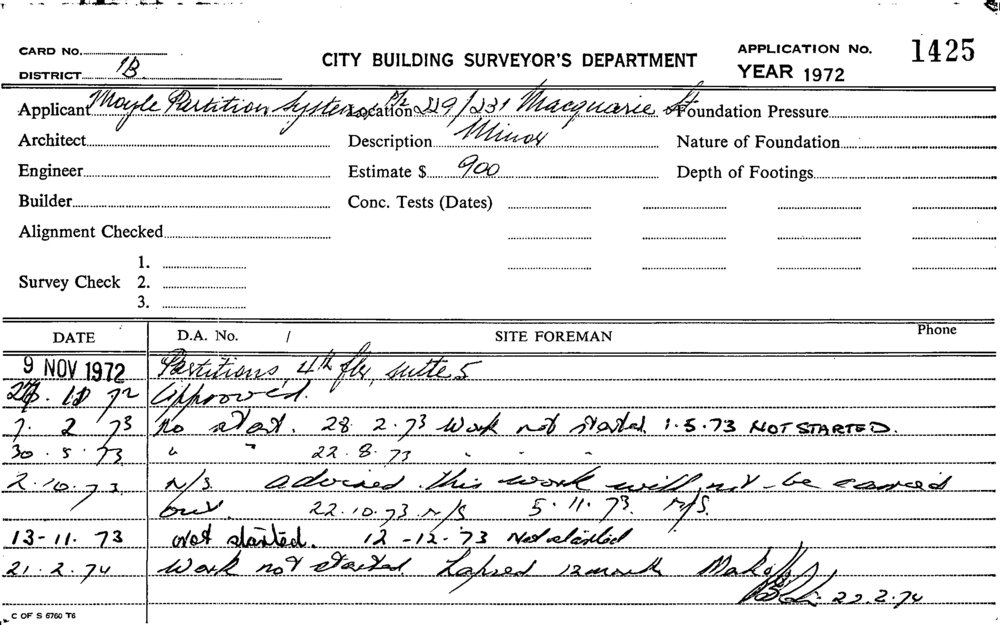 CARD No. CITY BUILDING SURVEYOR'S DEPARTMENT APPLICATION No. 1425
DISTRICT 1B YEAR 1972
Applicant Moyle Partition Systems Location 229/231 Macquarie St Foundation Pressure
Architect Description Minor Nature of Foundation
Engineer Estimate $ 900 Depth of Footings
Builder Conc. Tests (Dates)
Alignment Checked
1.
Survey Check 2.
3.
DATE D.A. No. / SITE FOREMAN Phone
9 NOV 1972 Partitions, 4th flr, suite 5
72 Approved.
7. 2 73 no start. 28. 2. 73 Work not started 1.5.73 NOT STARTED.
30. 5. 73 " " 22.8.73 " "
2.10.73 N/S. advised this work will not be carried
out. 22.10.73 N/S 5.11.73. N/S.
13-11. 73 not started. 12-12-73 Not started
21.2.74 Work not started. Lapsed 12 month
22.2.74
C OF S 6760 T6